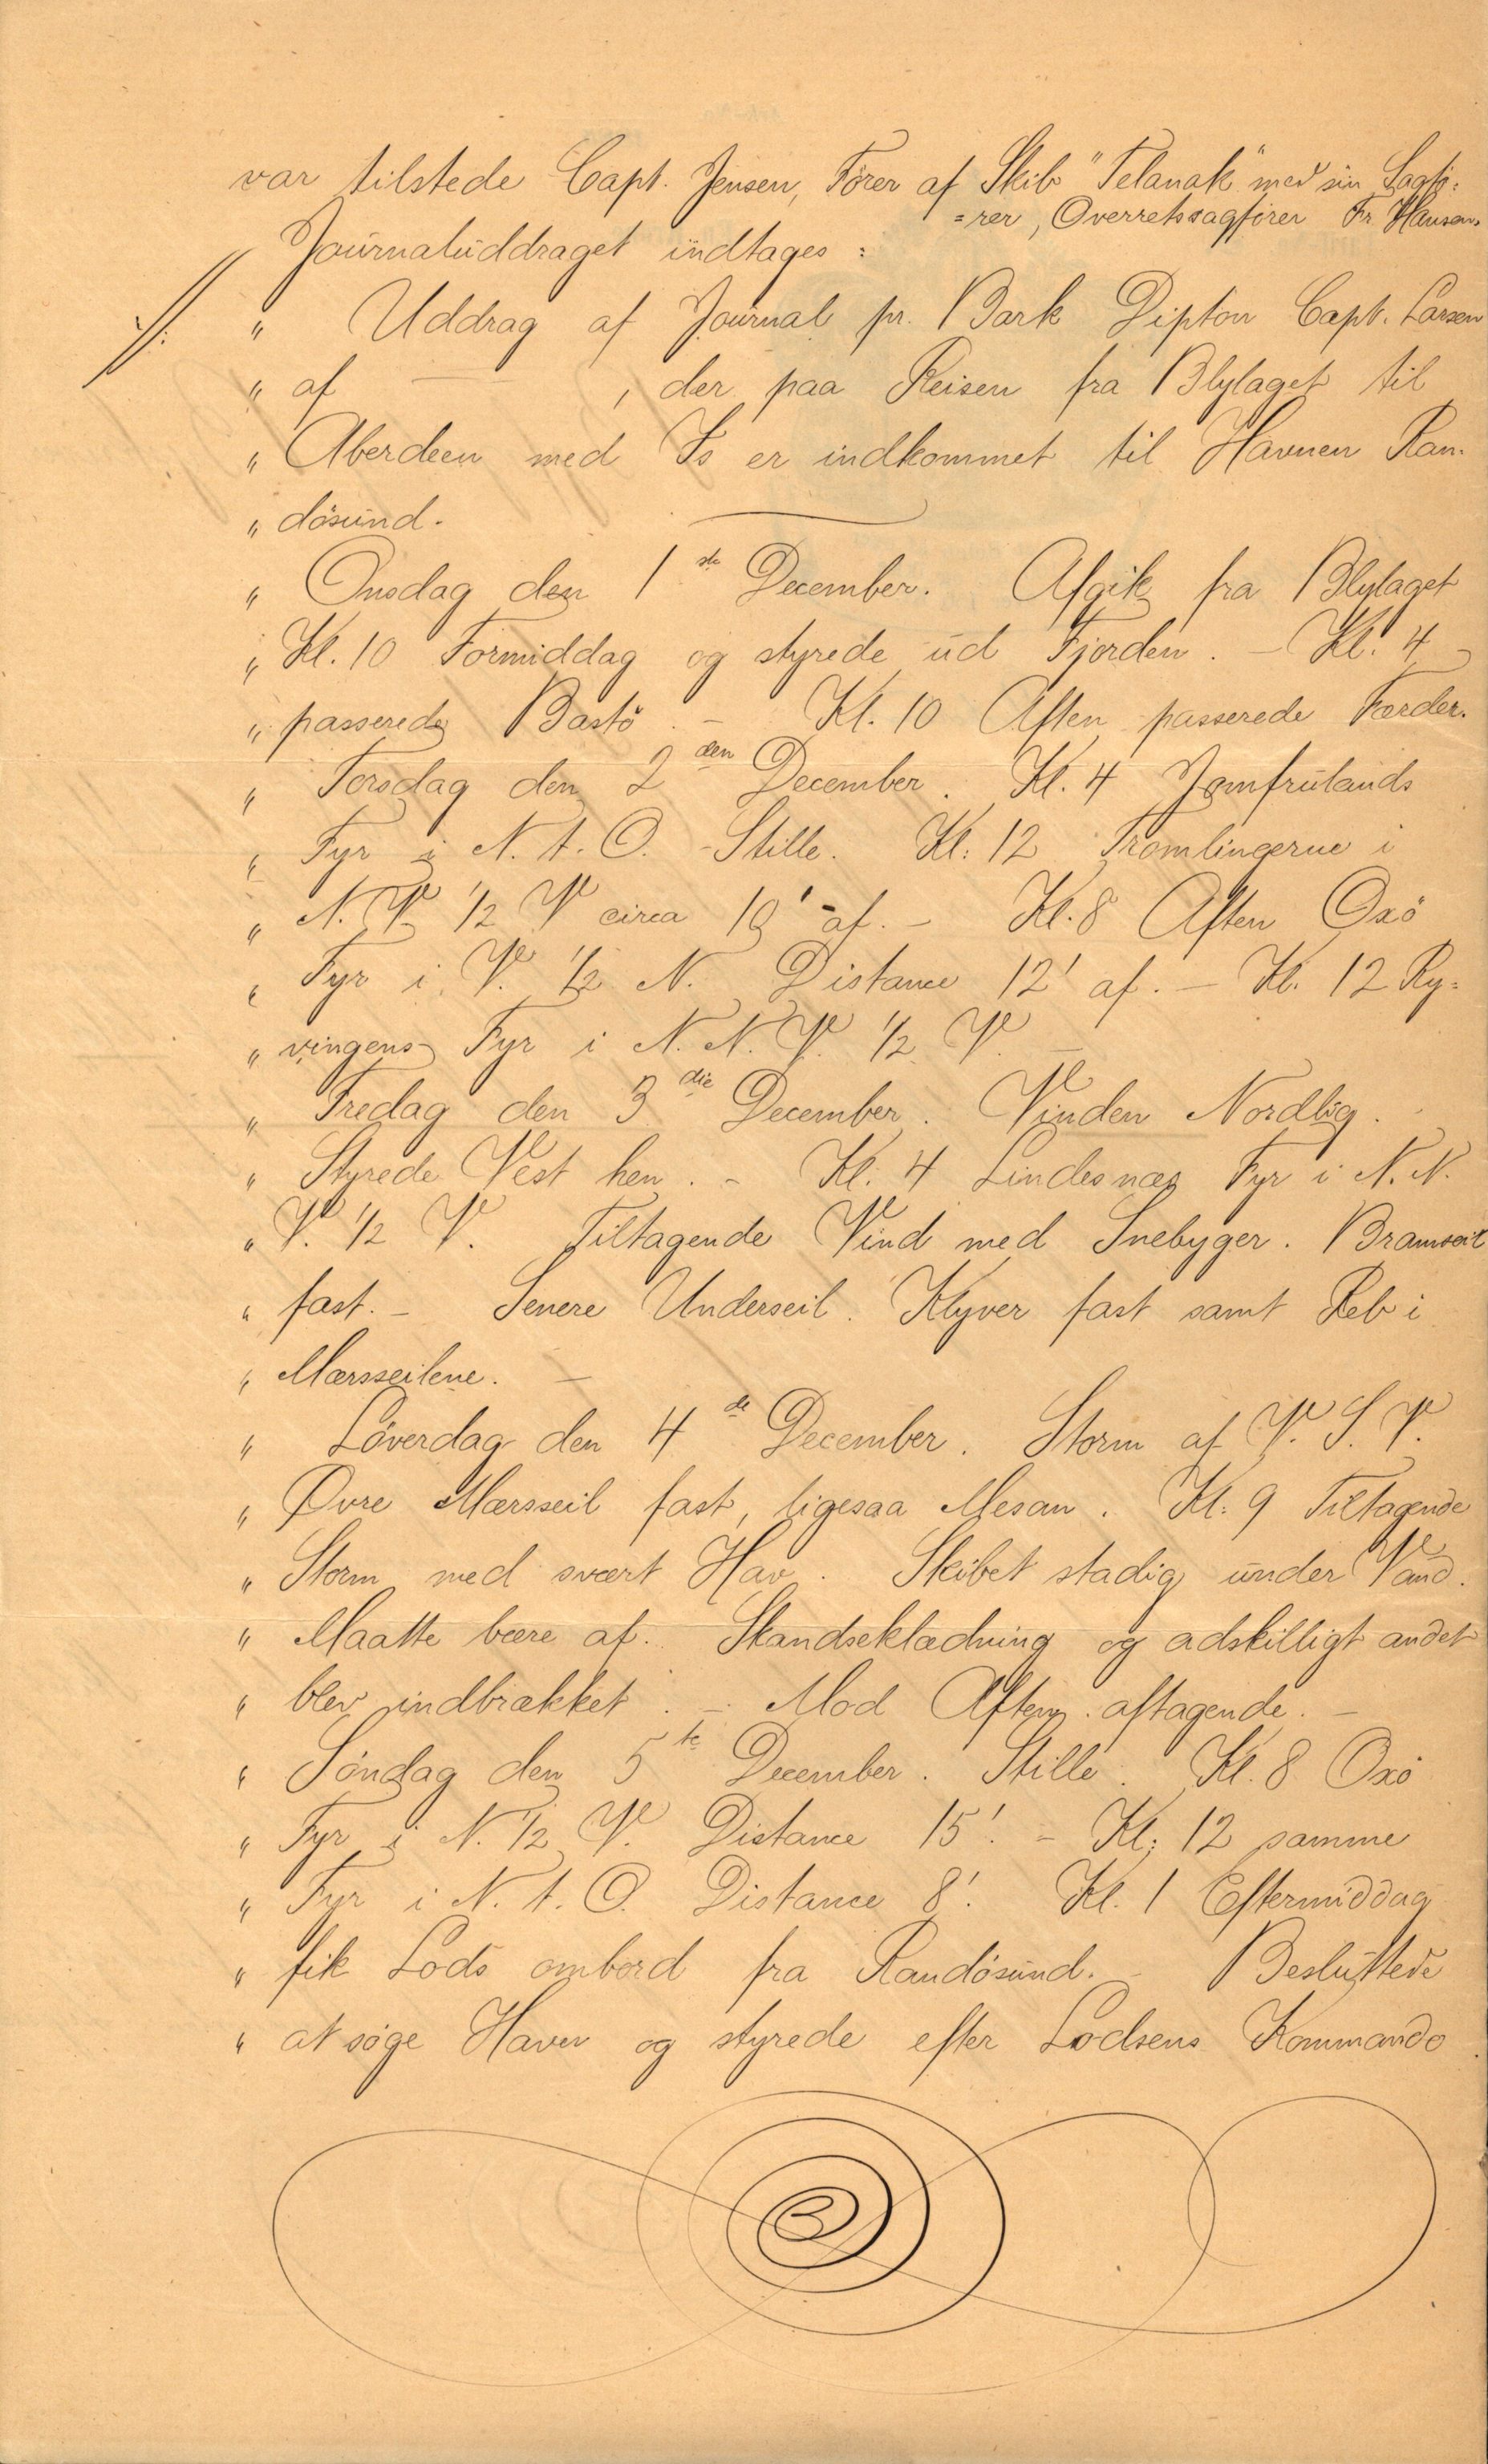 var tilstede Capt. Jensen, Fører af Skib "Telanak" med sin Sagfø=
=rer, Overretssagfører Fr. Hansen.
Journaluddraget indtages:
" Uddrag af Journal pr. Bark Dipton Capt. Larsen
" af — , der paa Reisen fra Blylaget til
" Aberdeen med Is er indkommet til Havnen Ran-
" døsund.
" Onsdag den 1ste December. Afgik fra Blylaget
" Kl. 10 Formiddag og styrede ud Fjorden. – Kl. 4
" passerede Bastö. – Kl. 10 Aften passerede Færder.
" Torsdag den 2den December. Kl. 4 Jomfrulands
" Fyr i N. t. O. Stille. Kl: 12 Tromlingerne i
" N. V. 1/2 V circa 10' af. – Kl. 8 Aften Oxö
" Fyr i V. 1/2 N. Distance 12' af. – Kl. 12 Ry=
" vingens Fyr i N. N. V. 1/2 V. –
" Fredag den 3die December. Vinden Nordlig.
" Styrede Vest hen. – Kl: 4 Lindesnæs Fyr i N. N.
" V. 1/2 V. Tiltagende Vind med Snebyger. Bramseil
" fast. – Senere Underseil. Klyver fast samt Reb i
" Mærsseilene. –
" Löverdag den 4de December. Storm af V. S. V.
" Øvre Mærsseil fast, ligesaa Mesan. Kl: 9 Tiltagende
" Storm med svært Hav. Skibet stadig under Vand.
" Maatte bære af. Skandseklædning og adskilligt andet
" blev indbrækket. – Mod Aften aftagende. –
" Söndag den 5te December. Stille. Kl. 8 Oxö
" Fyr i N. 1/2 V. Distance 15'. – Kl; 12 samme
" Fyr i N. t. O. Distance 8'. Kl. 1 Eftermiddag
" fik Lods ombord fra Randösund. – Besluttede
" at söge Havn og styrede efter Lodsens Kommando.